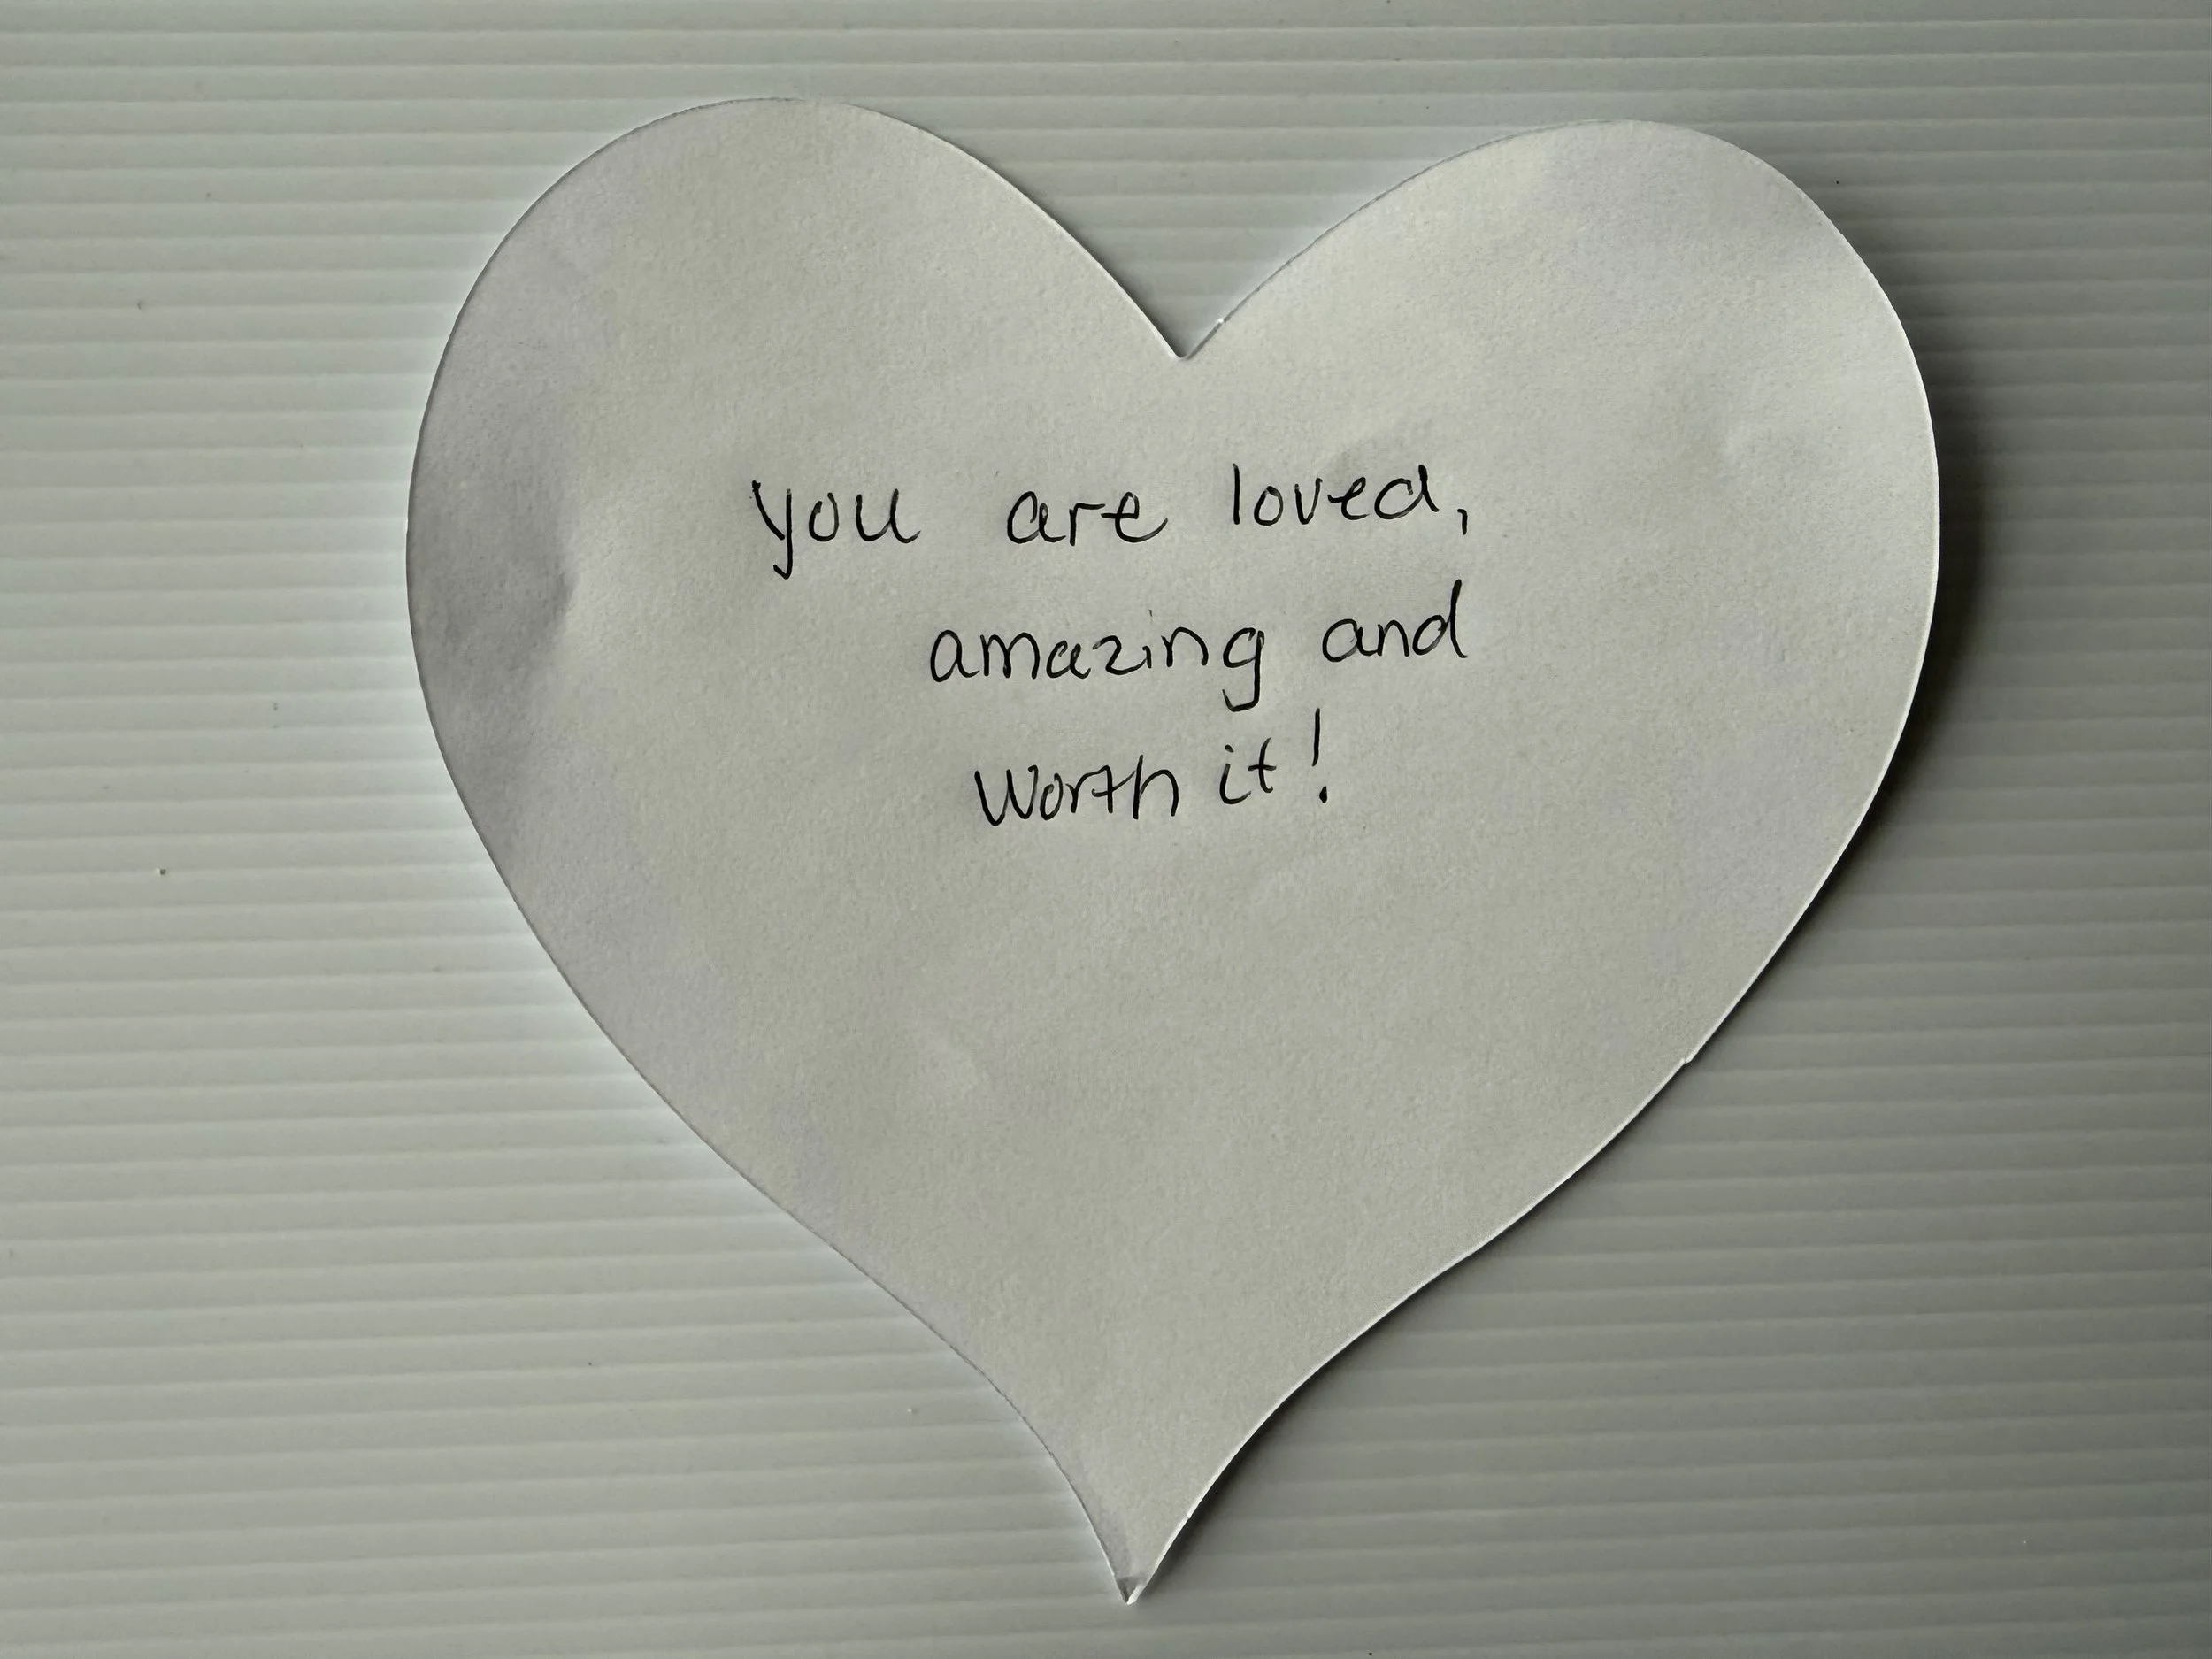 you are loved,
amazing and
Worth it!